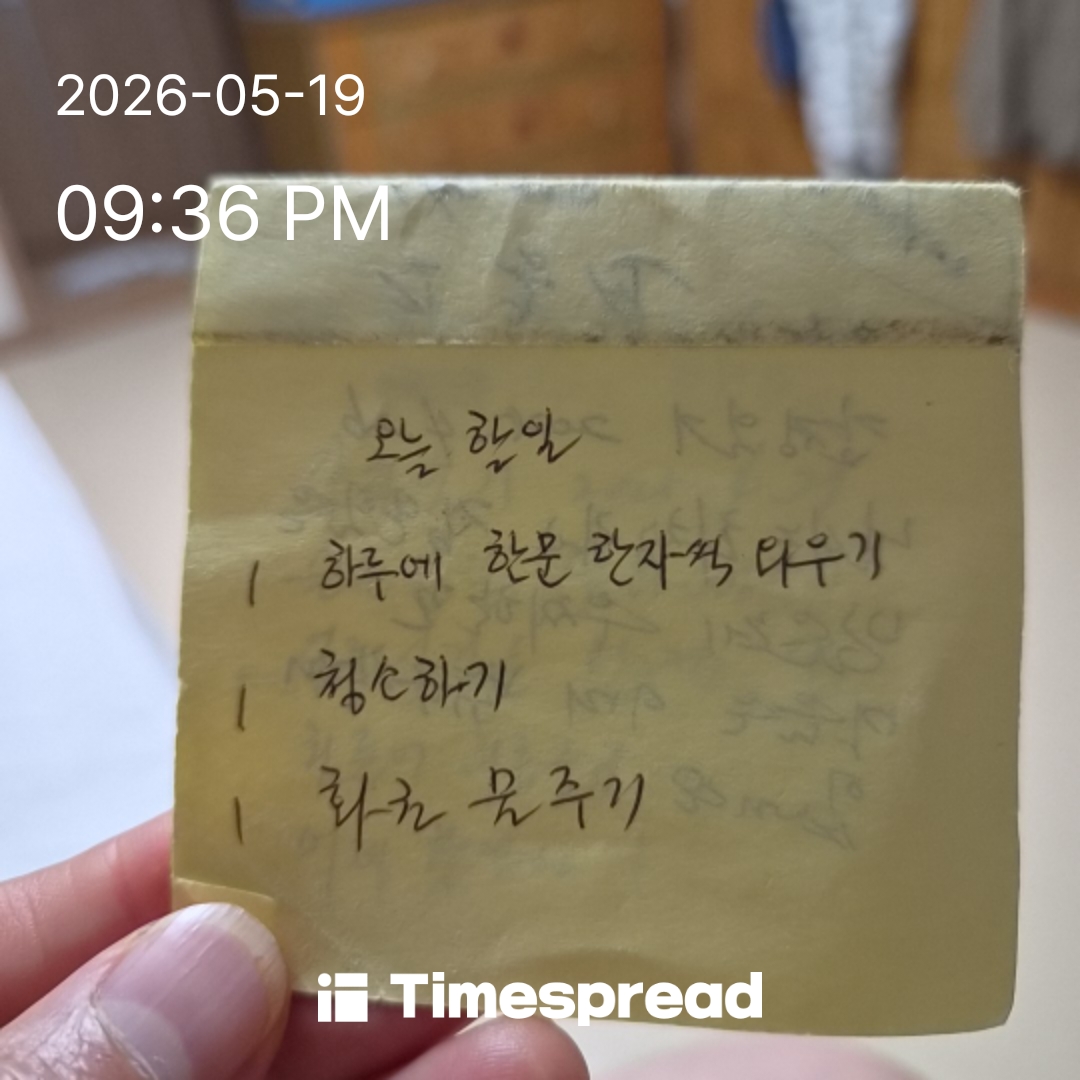 2026-05-19
09:36 PM
오늘 할일
| 하루에 한문 한자씩 외우기
| 청소하기
| 화초 물주기
Timespread